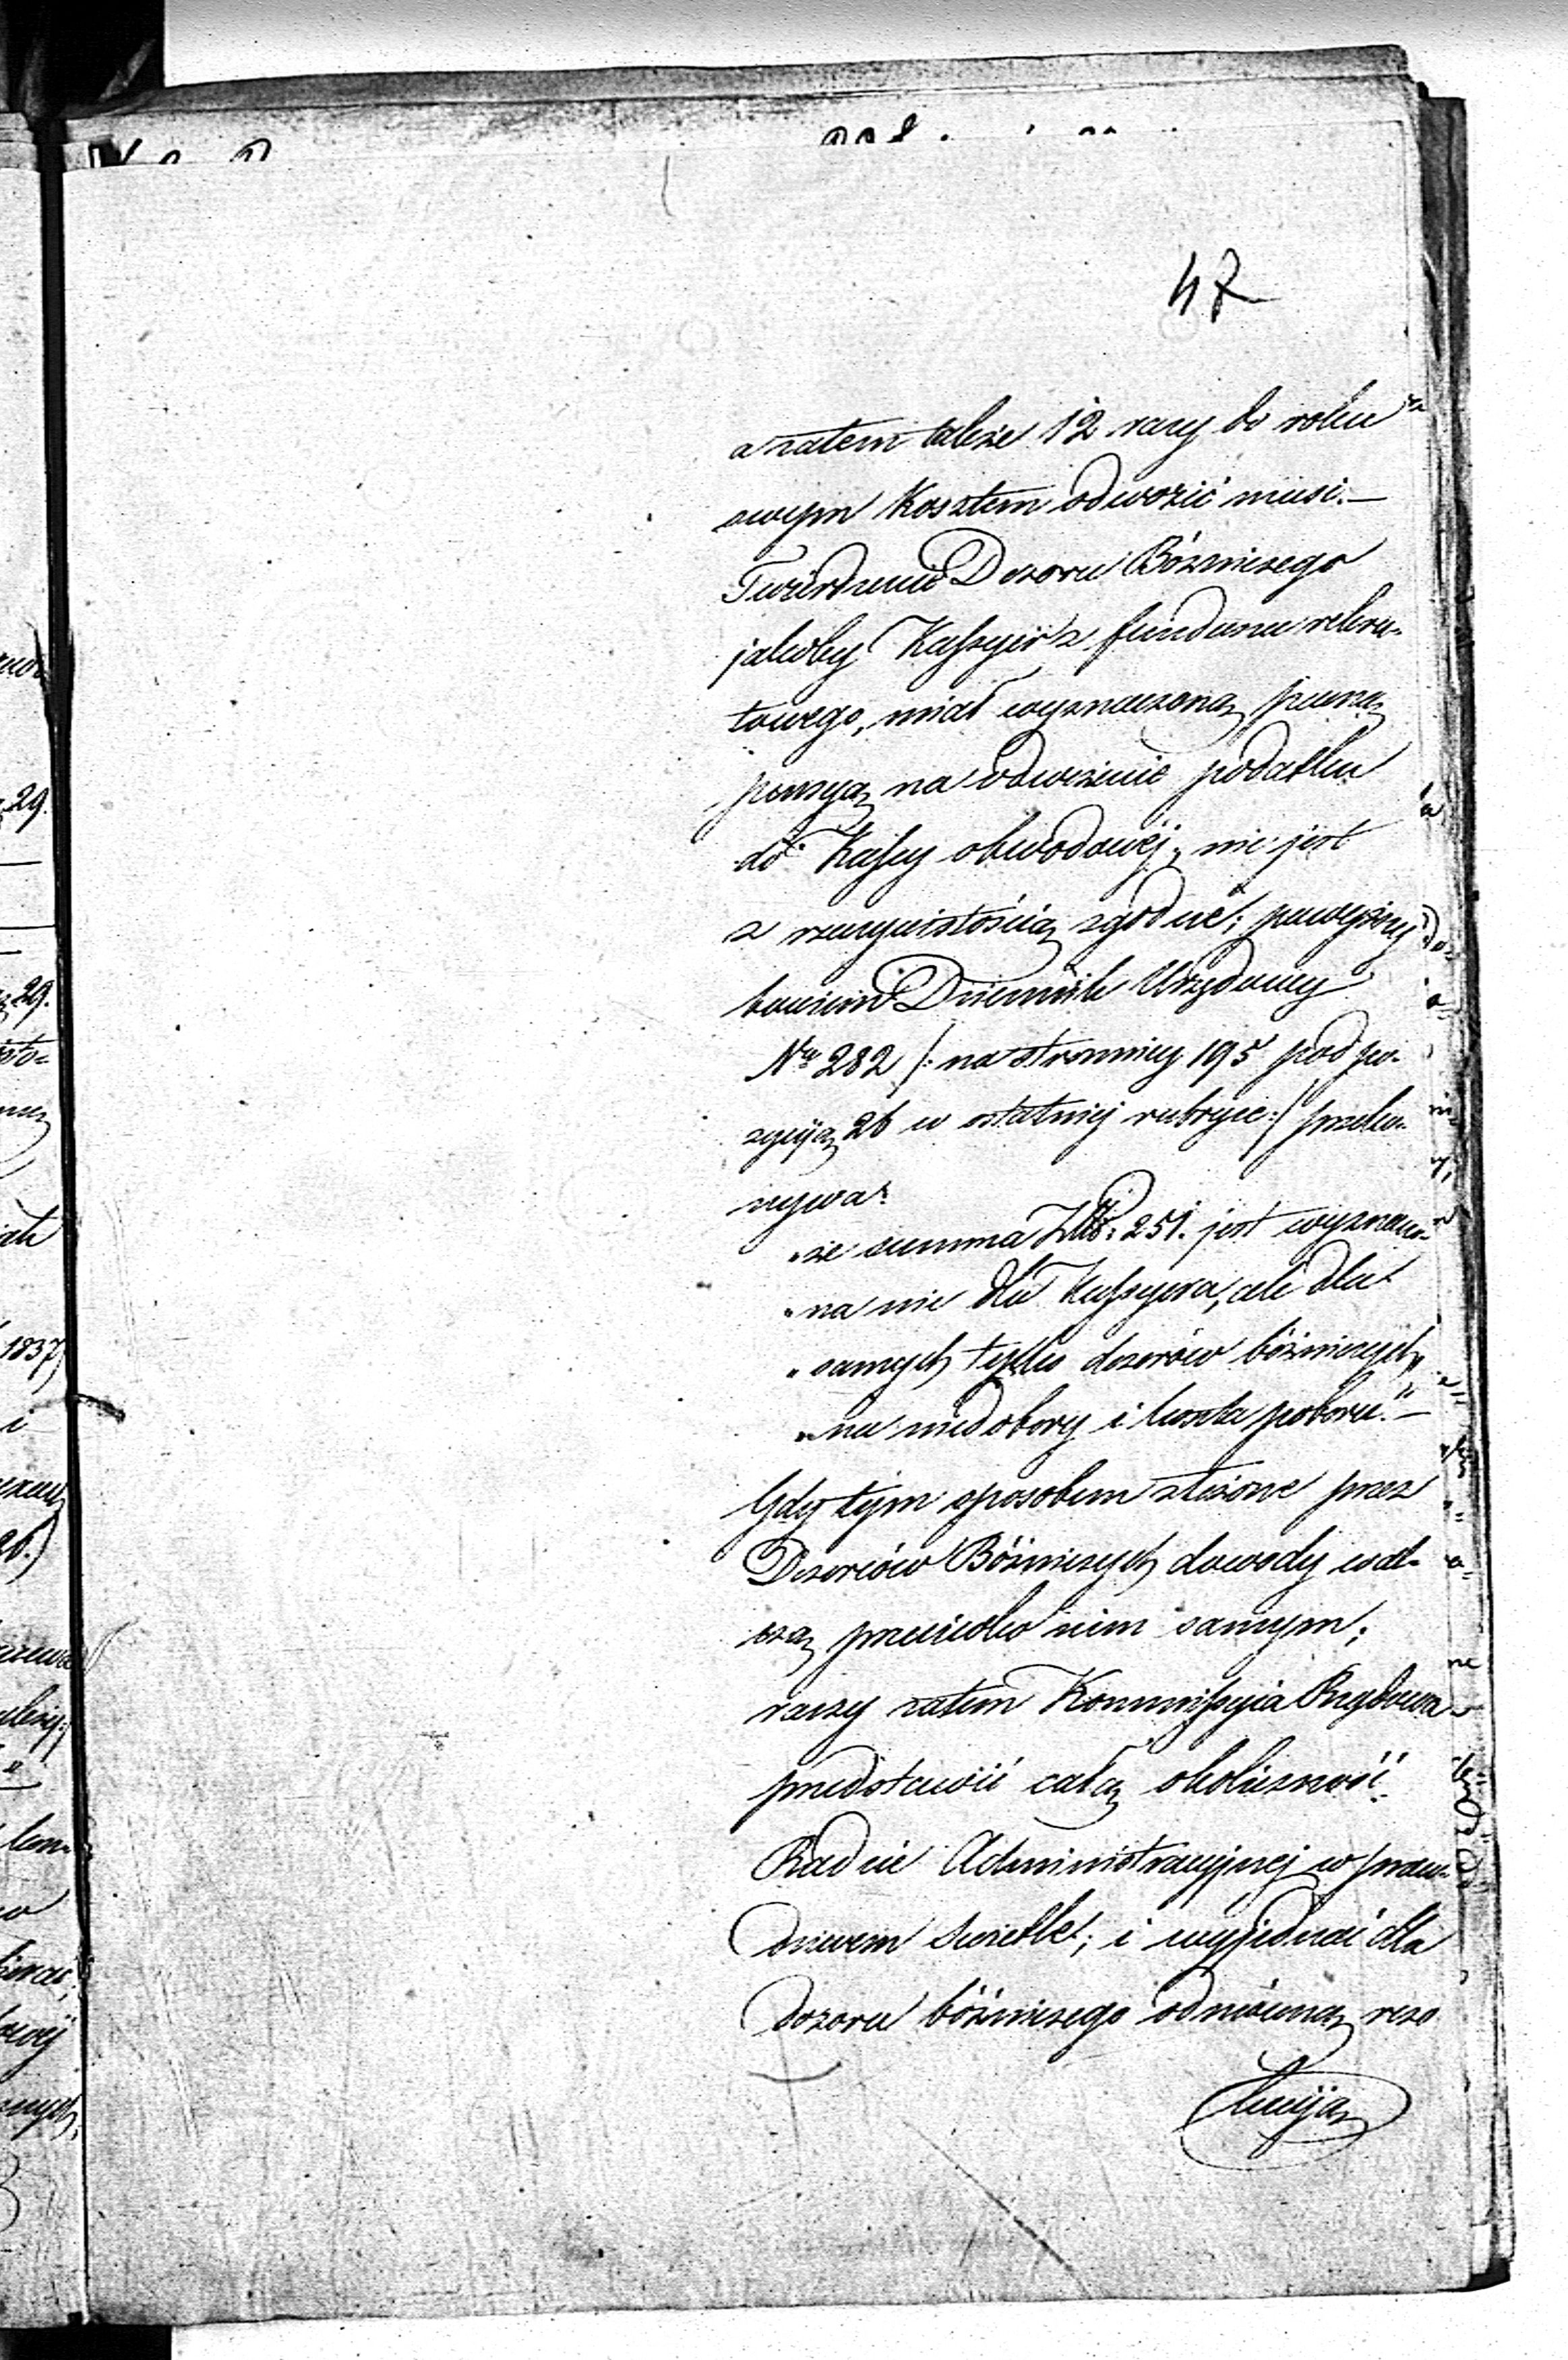 47
a zatem także 12 razy do roku
swym Kosztem odwozić musi. —
Twierdzenie Dozoru Bóżniczego
jakoby Kassyer z funduszu rekru-
towego, miał wyznaczoną pewną
pensyą na odwożenie podatku
do Kassy obwodowéj, nie jest
z rzeczywistością zgodne; powyższy
bowiem Dziennik Urzędowy
Nr 282 /: na stronnicy 195 pod po-
zycyą 26 w ostatniej rubryce :/ przeko-
nywa:
„że summa Złp. 251. jest wyznaczo-
„na nie dla Kassyera, ale dla
„samych tylko dozorów bóżniczych,
„na niedobory i koszta poboru." —
Gdy tym sposobem złożone przez
Dozorców Bóżniczych dowody wal-
czą przeciwko nim samym;
raczy zatem Kommissyia Rządowa
przedstawić całą okoliczność
Radzie Administracyjnej w praw-
dziwem świetle; i wyjednać dla
dozoru bóżniczego odmówną rezo
lucyją